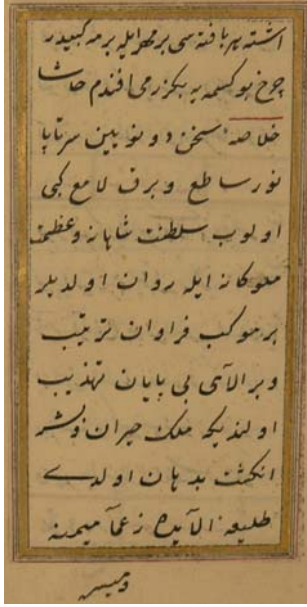 اشته پر بافته سی بر مهر ایله بر مه کبیدر
چرخ بو کسمه یه بکزرمی افندم حاشا
خلاصهٔ سخن دو نوبین سرتاپا
نور ساطع و برق لامع کبی
اولوب سلطنت شاهانه و عظمت
ملوکانه ایله روان اولدیلر
بر موکب فراوان ترتیب
وبر آلای بی پایان تهذیب
اولندیکه ملک حیران و بشر
انکشت بدهان اولدی
طلیعهٔ آلایده زعما میمنه
ومیسره